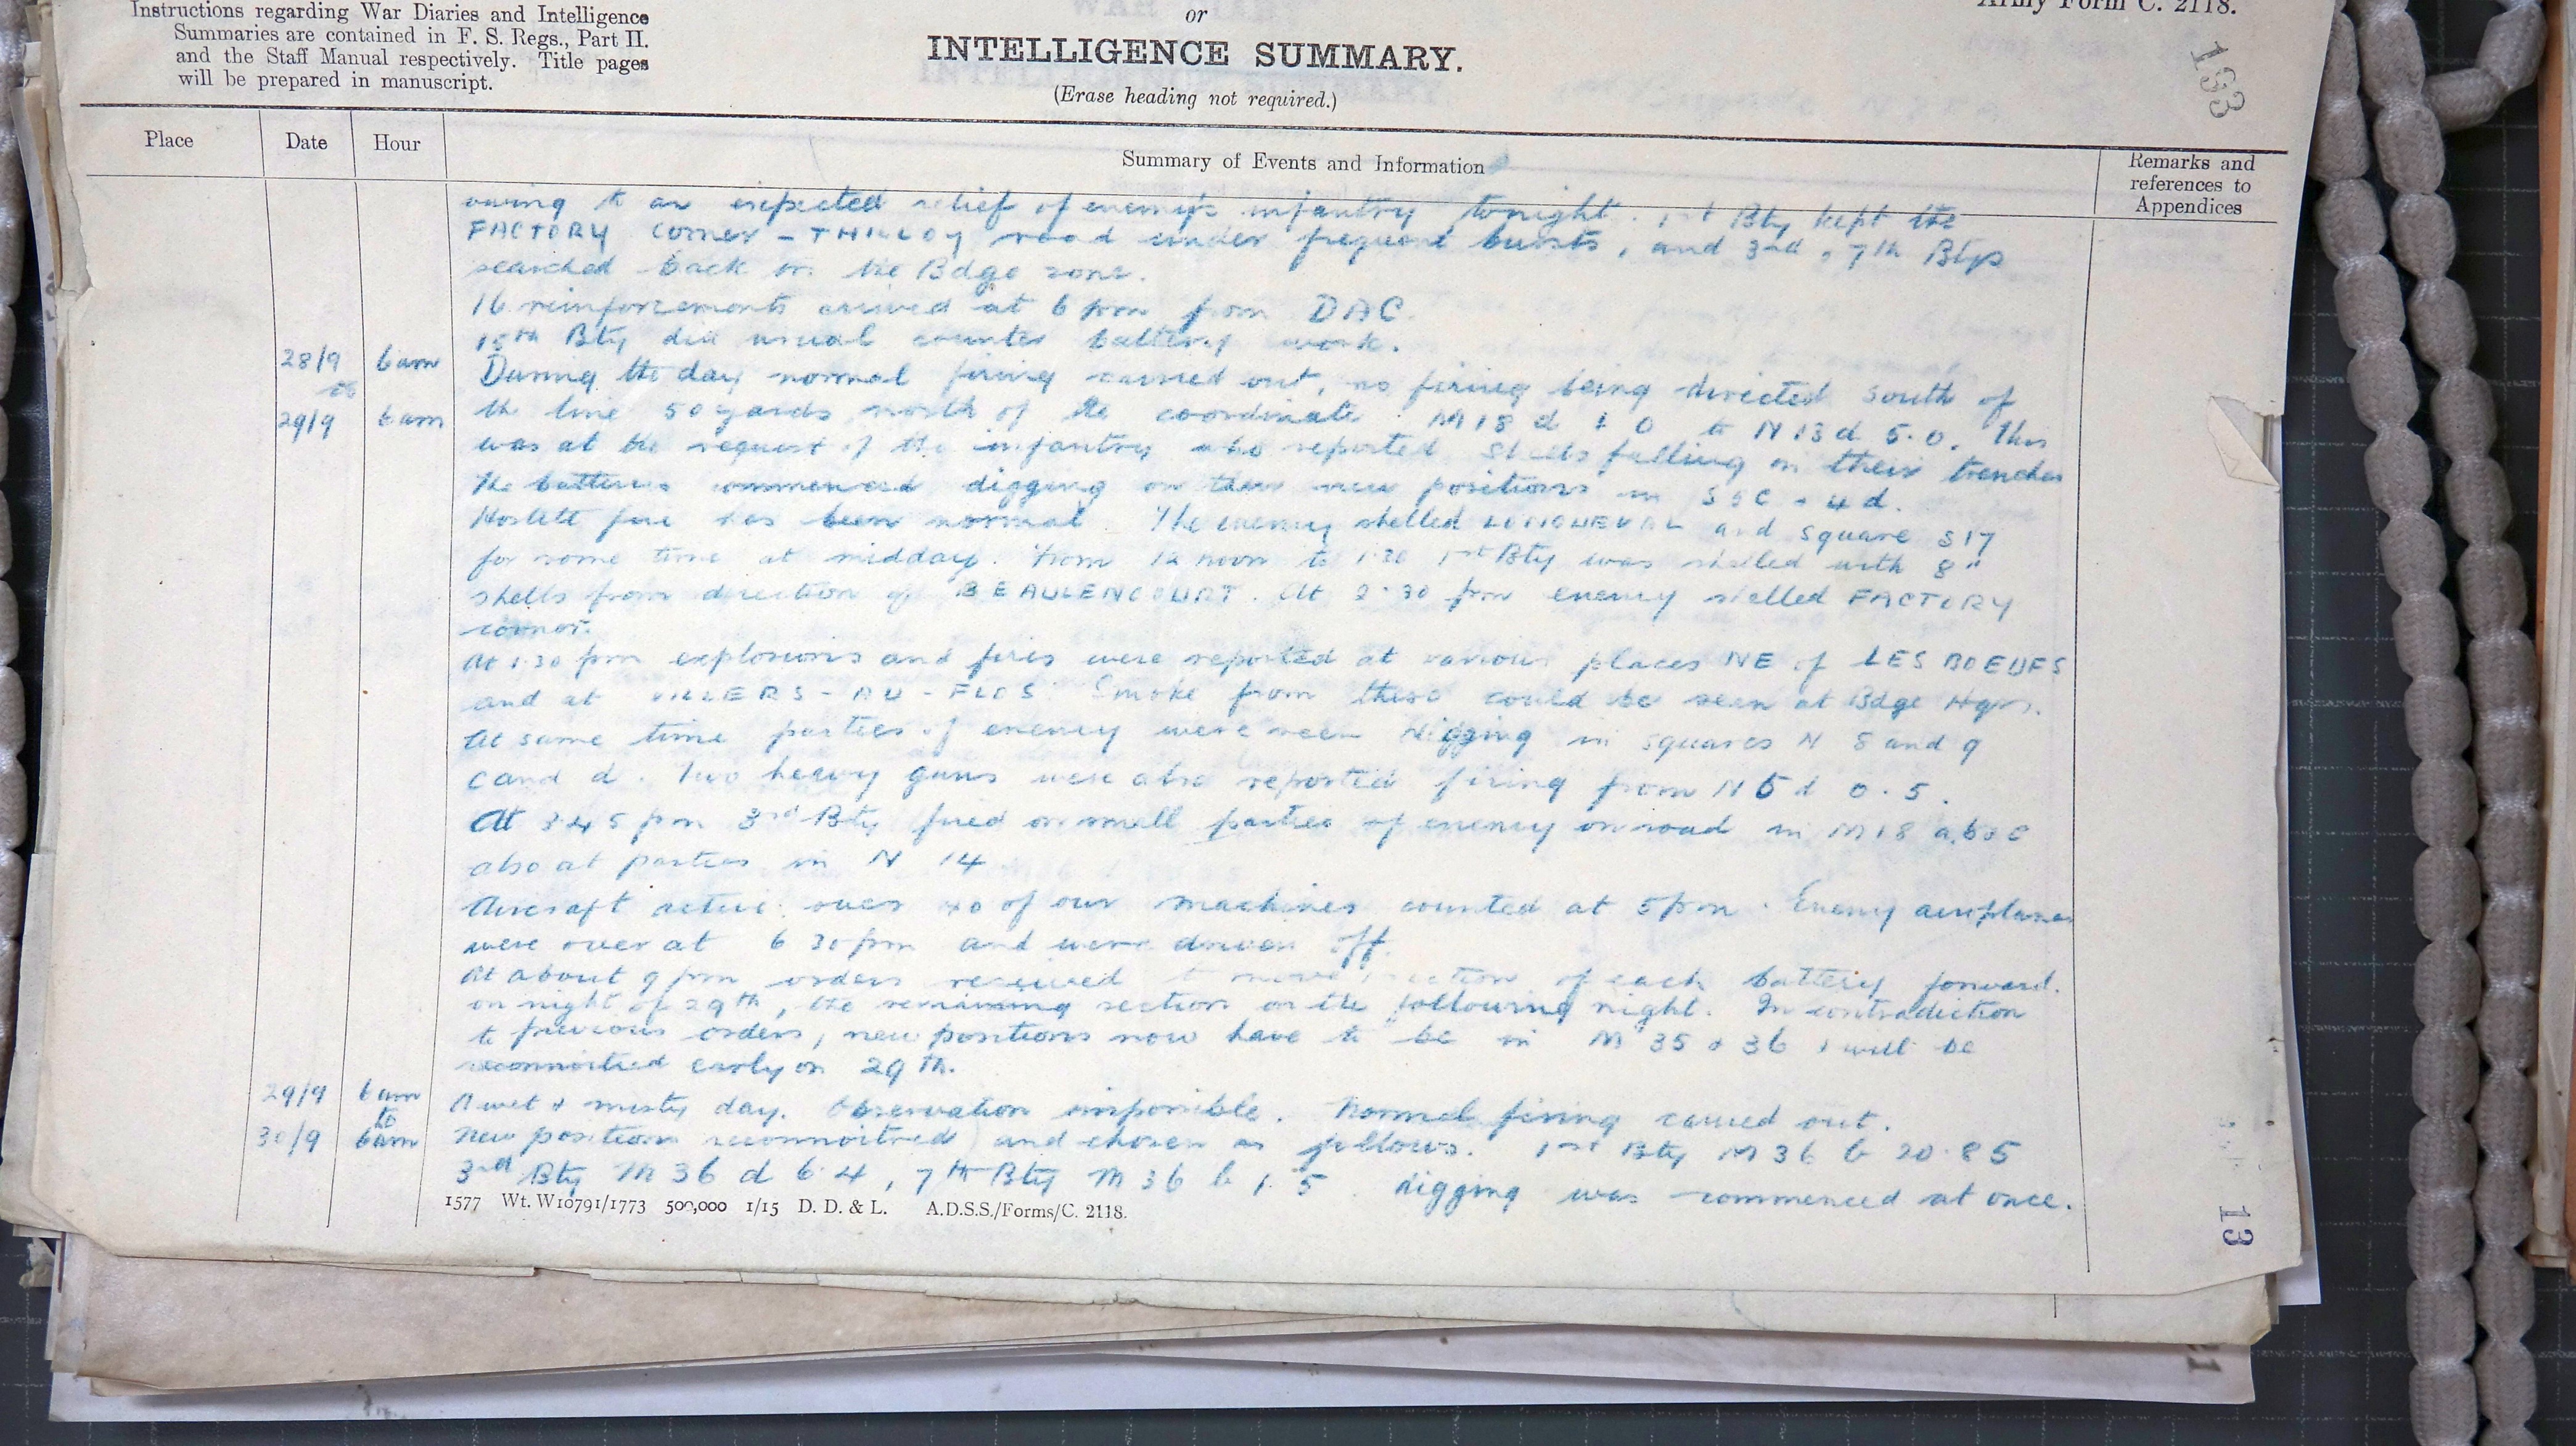 Instructions regarding War Diaries and Intelligence
Summaries are contained in F. S. Regs., Part II.
and the Staff Manual respectively. Title pages
will be prepared in manuscript.
or
INTELLIGENCE SUMMARY.
(Erase heading not required.)
Army Form C. 2118.
153
Place
Date
Hour
Summary of Events and Information
Remarks and
references to
Appendices
owing to an expected relief of enemy's infantry tonight. 1st Bty kept the
FACTORY Corner - THILLOY road under frequent bursts, and 3rd, 7th Btys
searched back on the Bdge zone.
16 reinforcements arrived at 6 pm from DAC.
15th Bty did usual counter battery work.
28/9 6 am During the day normal firing carried out, no firing being directed south of
to
29/9 6 am the line 50 yards north of the coordinate M 18 d 1 0 to N 13 d 5.0. This
was at the request of the infantry who reported shells falling on their trenches
The batteries commenced digging on their new positions in S 5 C + 4 d.
Hostile fire has been normal. The enemy shelled LONGUEVAL and square S 17
for some time at midday. From 12 noon to 1.30 1st Bty was shelled with 8"
shells from direction of BEAULENCOURT. At 2.30 pm enemy shelled FACTORY
corner.
At 1.30 pm explosions and fires were reported at various places NE of LES BOEUFS
and at VILLERS-AU-FLOS. Smoke from these could be seen at Bdge Hqrs.
At same time parties of enemy were seen digging in squares N 8 and 9
c and d. Two heavy guns were also reported firing from N 5 d 0.5.
At 3.45 pm 3rd Bty fired on small parties of enemy on road in M 18 a, b & c
also at parties in N 14
Aircraft active. over 40 of our machines counted at 5 pm. Enemy aeroplanes
were over at 6 30 pm and were driven off.
At about 9 pm orders received to move section of each battery forward.
on night of 29th, the remaining section on the following night. In contradiction
to previous orders, new positions now have to be in M 35 & 36 & will be
reconnoitred early on 29th.
29/9 6 am A wet & misty day. Observation impossible. Normal firing carried out.
to
30/9 6 am New positions reconnoitred and chosen as follows. 1st Bty M 36 b 20.85
3rd Bty M 36 d 6.4, 7th Bty M 36 b 1.5 digging was commenced at once.
1577 Wt. W10791/1773 500,000 1/15 D. D. & L. A.D.S.S./Forms/C. 2118.
13